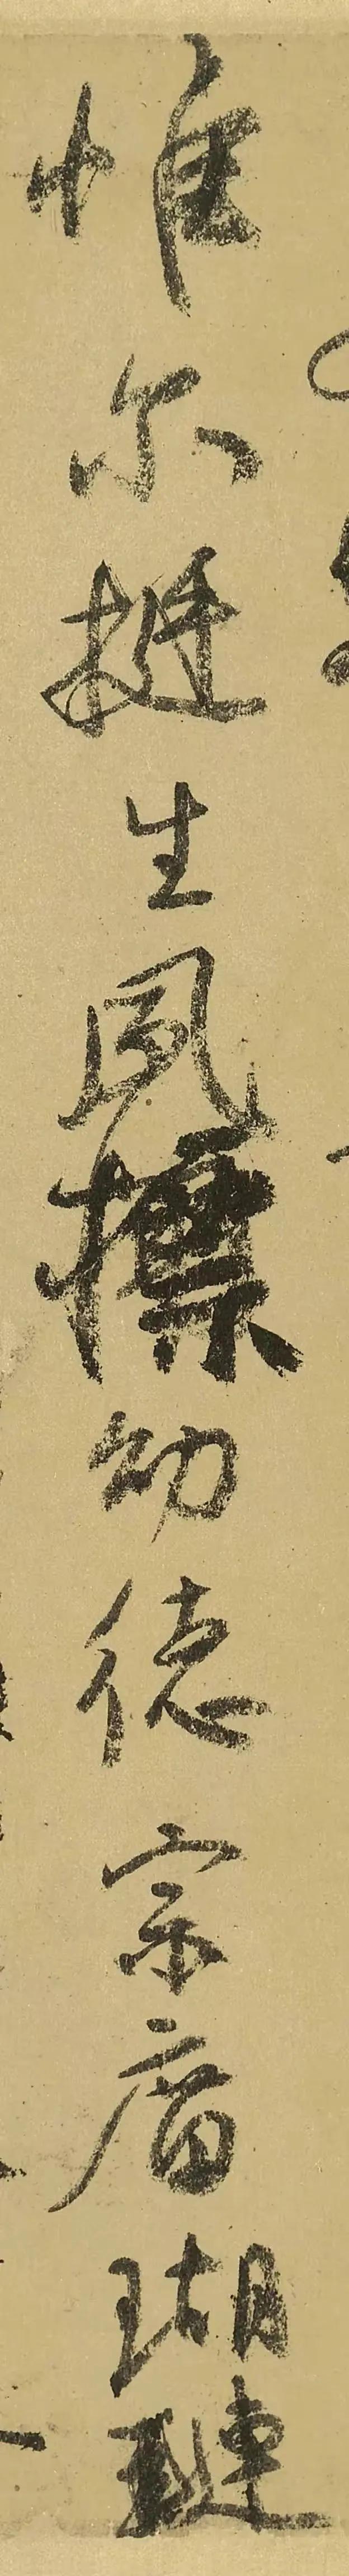 惟尔挺生夙標幼德宗庿瑚璉